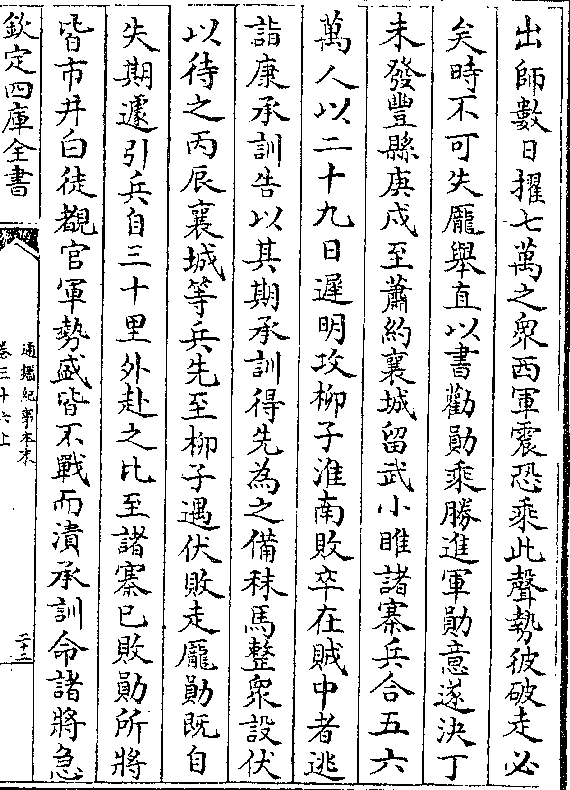 出師數日擢七萬之衆西軍震恐乘此聲勢彼破走必
矣時不可失龐舉直以書勸勛乘勝進軍勛意遂決丁
未發豐縣庚戌至蕭約襄城留武小睢諸寨兵合五六
萬人以二十九日遲明攻柳子淮南敗卒在賊中者逃
詣康承訓告以其期承訓得先為之備秣馬整衆設伏
以待之丙辰襄城等兵先至柳子遇伏敗走龐勛既自
失期遽引兵自三十里外赴之比至諸寨已敗勛所將
皆市井白徒覩官軍勢盛皆不戰而潰承訓命諸將急
欽定四庫全書
通鑑紀事本末
卷三十六上
二十二